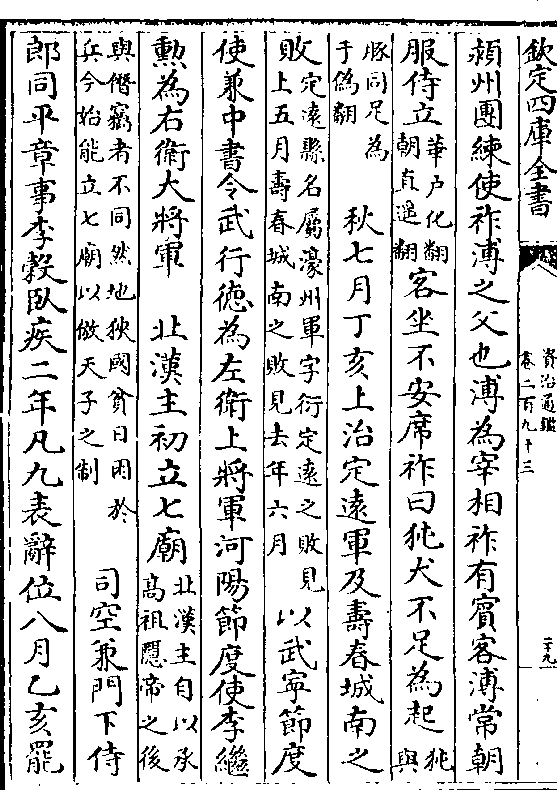 欽定四庫全書
資治通鑑
卷二百九十三
二十九
潁州團練使祚溥之父也溥為宰相祚有賓客溥常朝
服侍立華戶化翻
朝直遥翻客坐不安席祚曰㹠犬不足為起㹠
與
豚同足為
于偽翻　秋七月丁亥上治定遠軍及壽春城南之
敗定遠縣名屬濠州軍字衍定遠之敗見
上五月壽春城南之敗見去年六月以武寧節度
使兼中書令武行德為左衛上將軍河陽節度使李繼
勲為右衛大將軍　北漢主初立七廟北漢主自以承
高祖隱帝之後
與僭竊者不同然地狹國貧日困於
兵今始能立七廟以倣天子之制　司空兼門下侍
郎同平章事李穀臥疾二年凡九表辭位八月乙亥罷